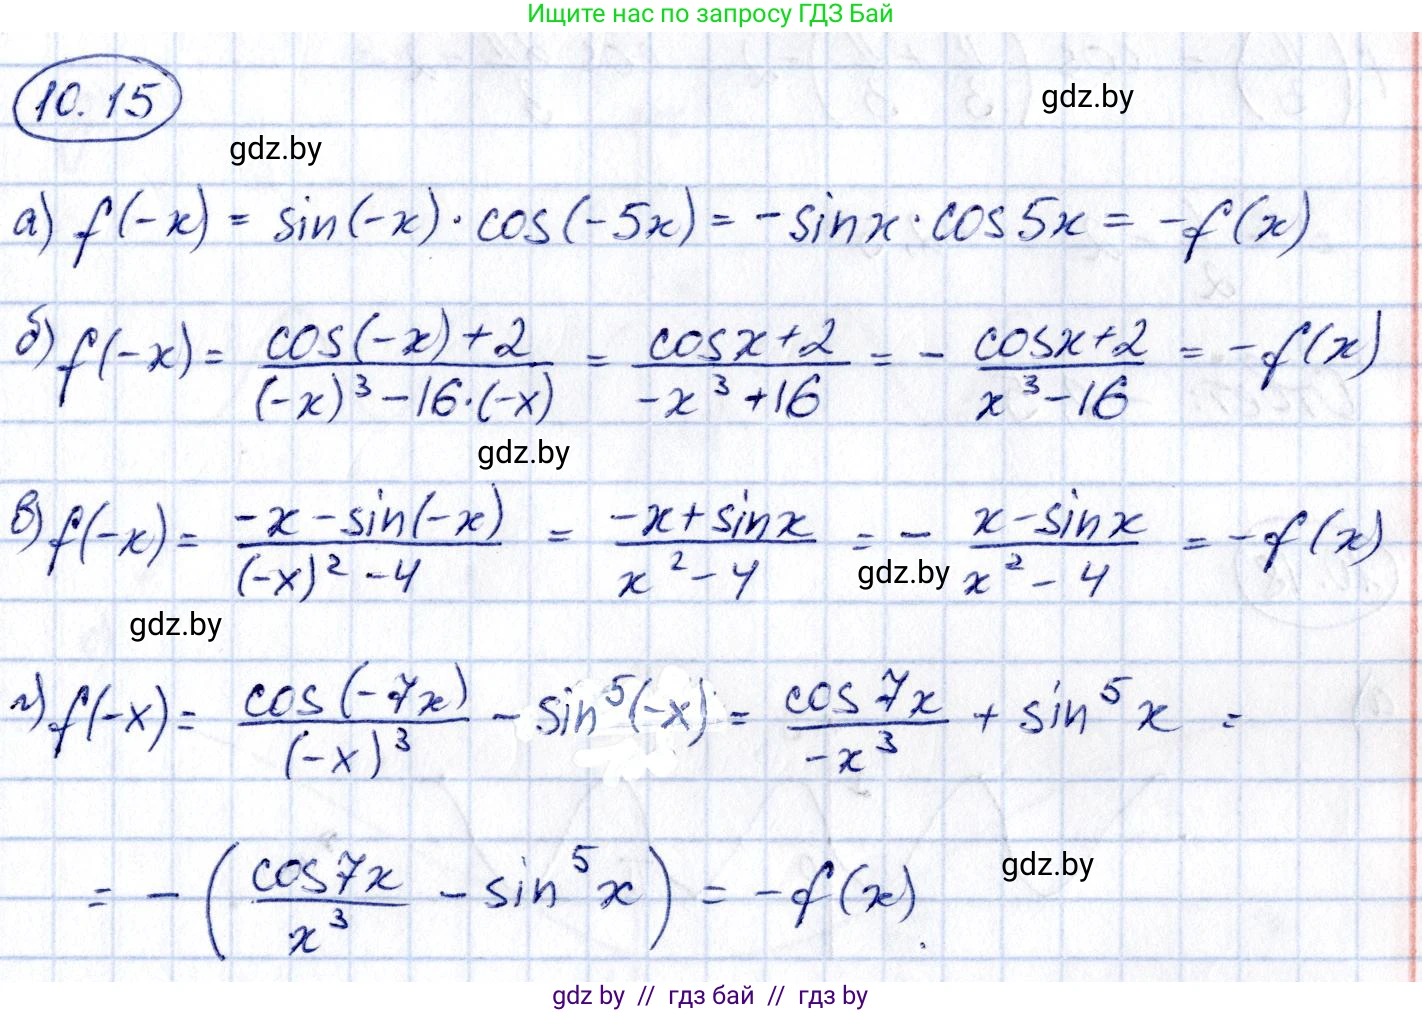 Ищите нас по запросу ГДЗ Бай
10.15
gdz.by
gdz.by
а) f(-x) = sin(-x)·cos(-5x) = -sinx·cos5x = -f(x)
б) f(-x) = (cos(-x)+2)/((-x)³-16·(-x)) = (cosx+2)/(-x³+16) = - (cosx+2)/(x³-16) = -f(x)
gdz.by
в) f(-x) = (-x-sin(-x))/((-x)²-4) = (-x+sinx)/(x²-4) = - (x-sinx)/(x²-4) = -f(x)
gdz.by
gdz.by
г) f(-x) = cos(-7x)/(-x)³ - sin⁵(-x) = cos7x/-x³ + sin⁵x =
= - (cos7x/x³ - sin⁵x) = -f(x).
gdz.by
gdz by // гдз бай // гдз by